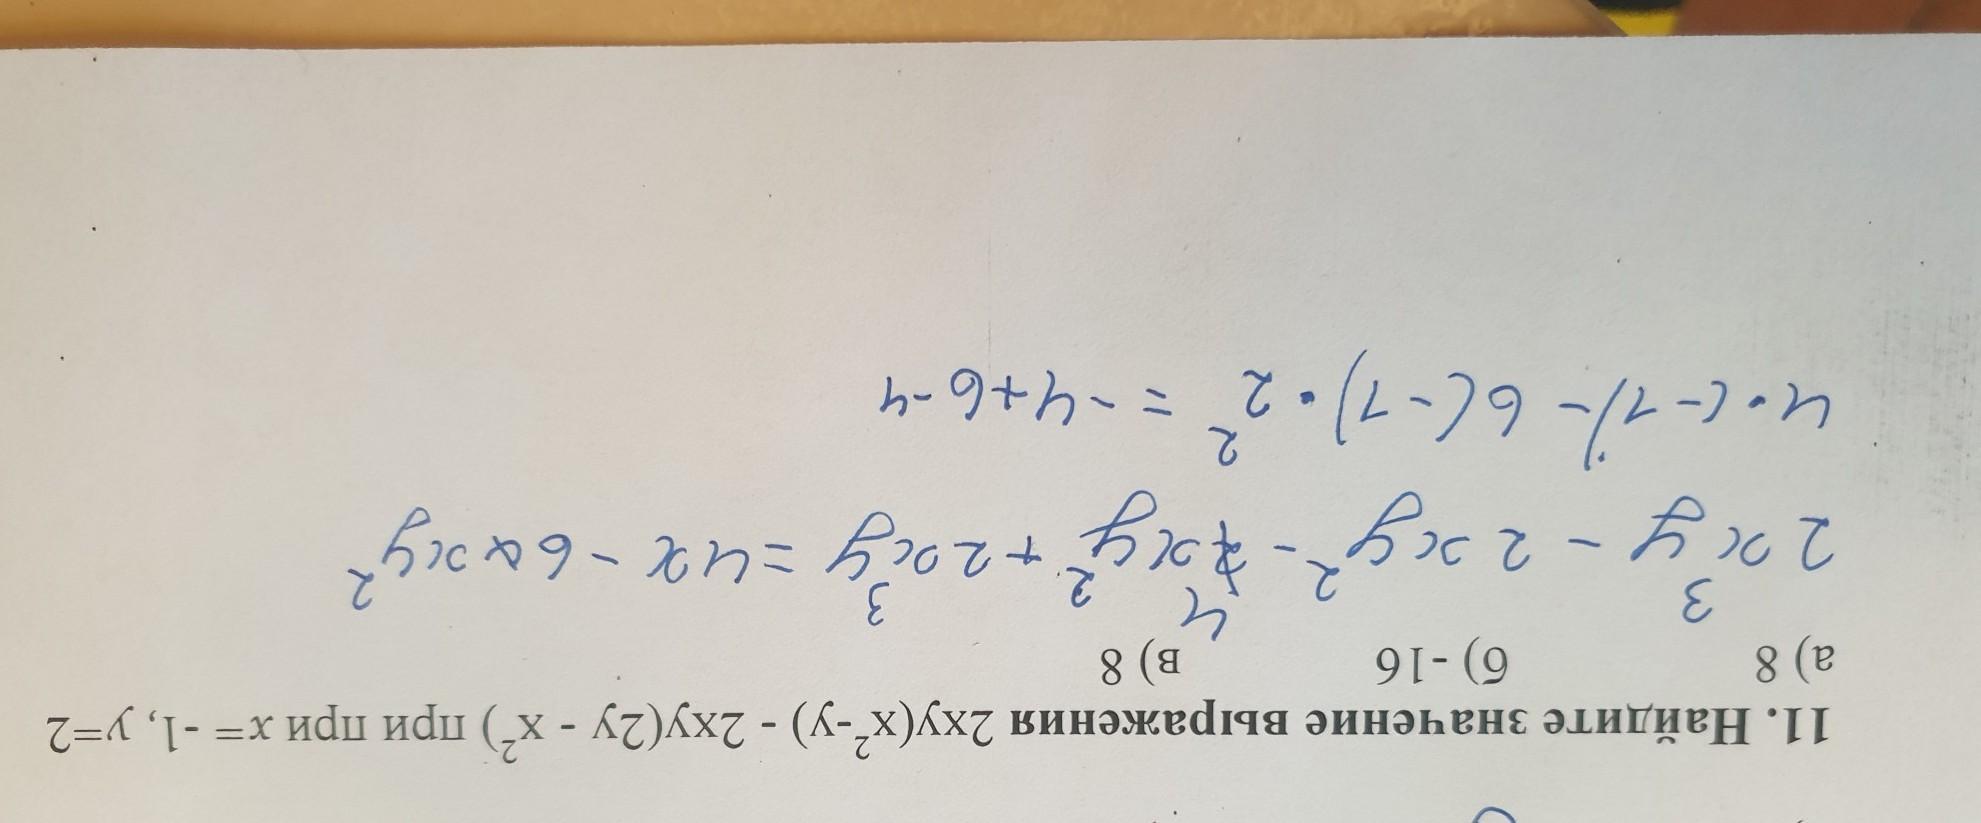 11. Найдите значение выражения 2xy(x²-y) - 2xy(2y - x²) при при x= -1, y=2
а) 8 б) -16 в) 8
2x³y - 2xy² - 4xy² + 2x³y = 4x - 6xy²
4·(-1) - 6(-1)·2² = -4+6-4